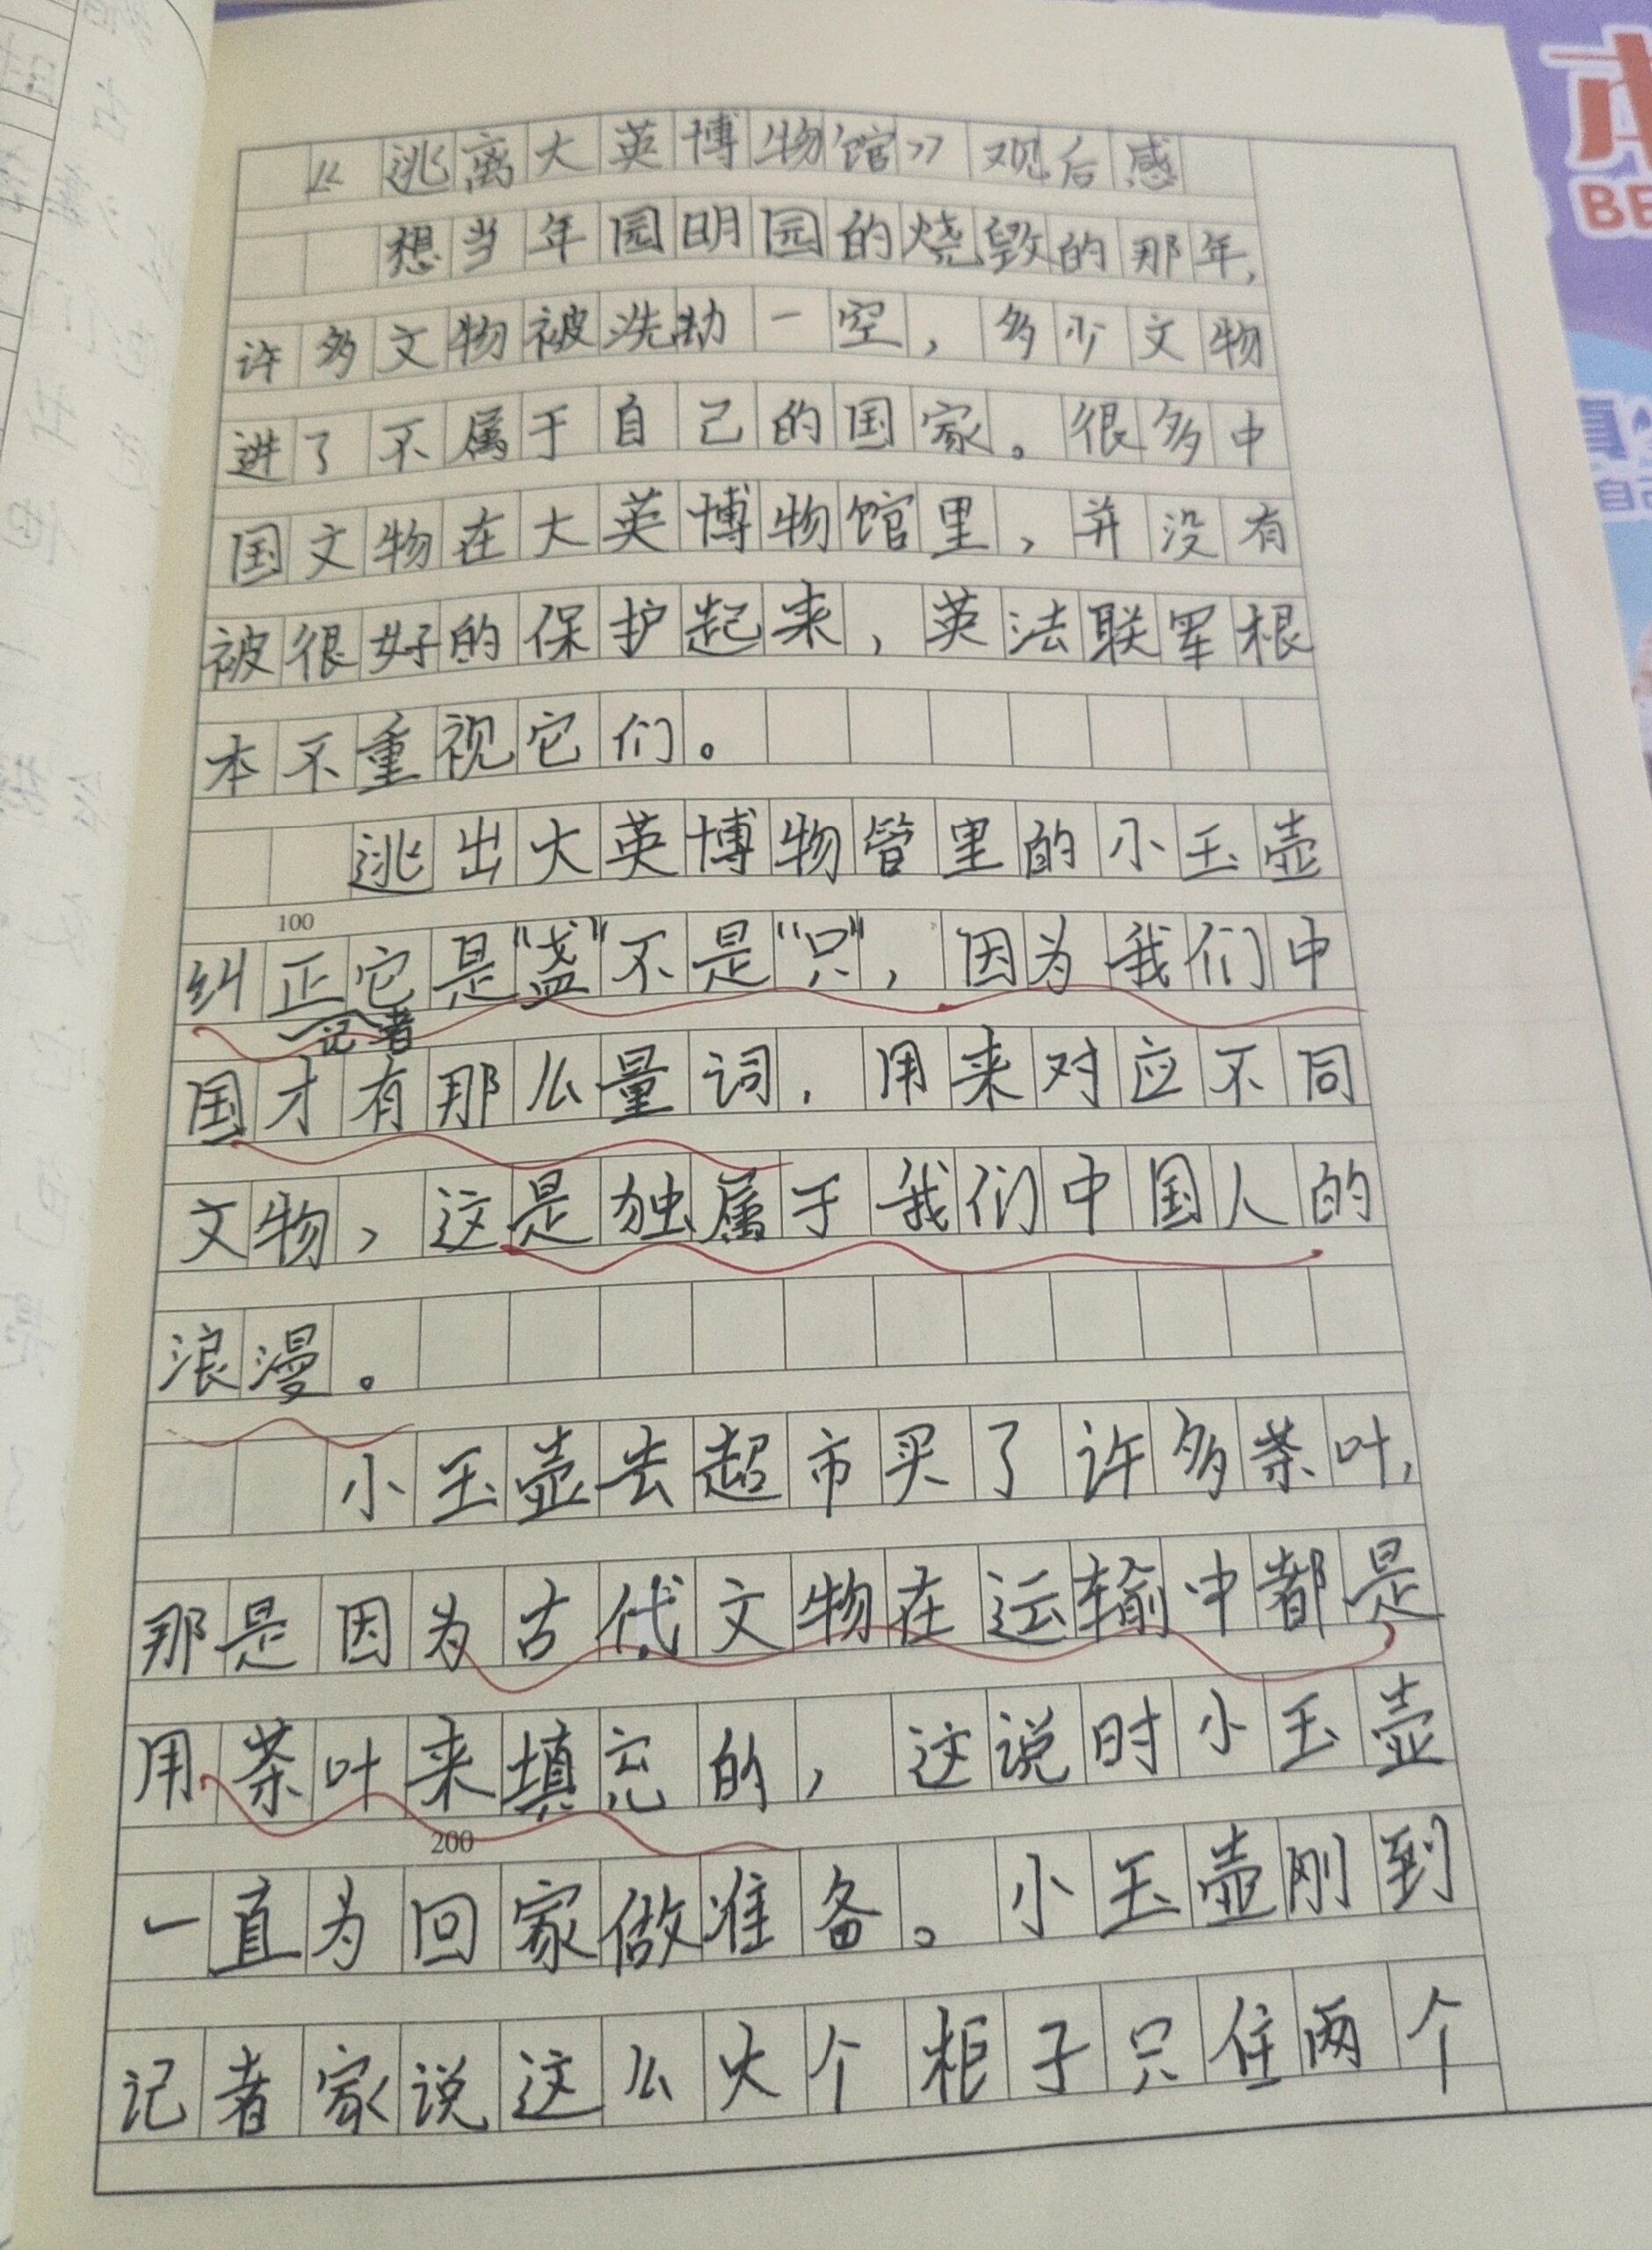 《逃离大英博物馆》观后感
想当年园明园的烧毁的那年,
许多文物被洗劫一空,多少文物
进了不属于自己的国家。很多中
国文物在大英博物馆里,并没有
被很好的保护起来,英法联军根
本不重视它们。
逃出大英博物管里的小玉壶
100
纠正它是"盏"不是"只",因为我们中
记者
国才有那么量词,用来对应不同
文物,这是独属于我们中国人的
浪漫。
小玉壶去超市买了许多茶叶,
那是因为古代文物在运输中都是
用茶叶来填充的,这说时小玉壶
200
一直为回家做准备。小玉壶刚到
记者家说这么大个柜子只住两个
BE
自己